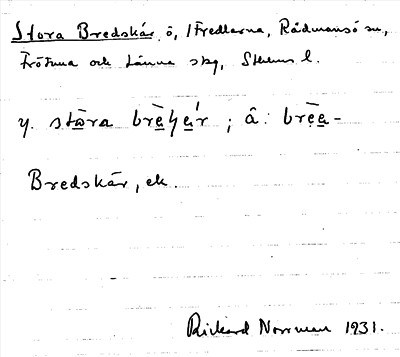 Stora Bredskär, ö, i Fredlarna, Rådmansö sn,
Frötuna och Länna skg, Sthlms l.
y. stōra brèʃær ; â: brèe -
Bredskär, ek.
Rickard Norrman 1931.